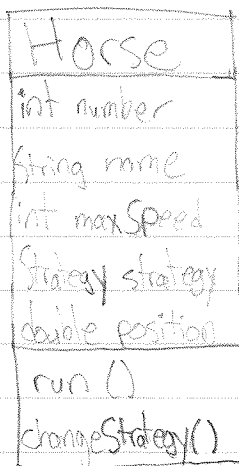 Horse
int number
String name
int maxSpeed
Strategy strategy
double position
run ()
changeStrategy()